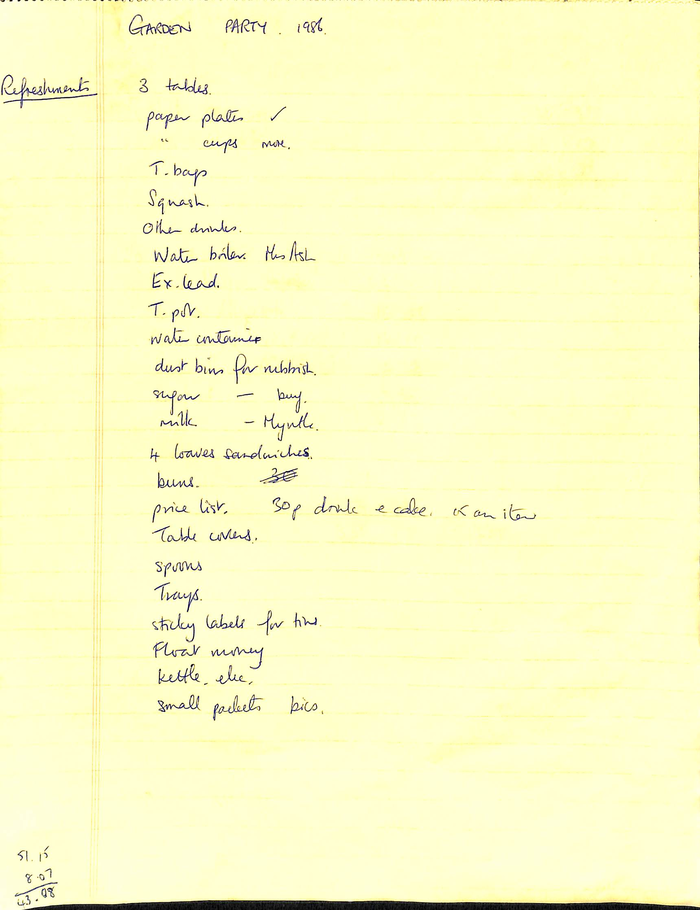 GARDEN PARTY. 1986.
Refreshments
3 tables.
paper plates ✓
" cups more.
T. bags
Squash.
Other drinks.
Water boiler. Mrs Ash
Ex. lead.
T. pot.
water container
dust bins for rubbish.
sugar — buy.
milk — Myrtle.
4 loaves sandwiches.
buns.
price list. 30p drink e cake. an item
Table covers.
spoons
Trays.
sticky labels for tins.
Float money
kettle. elec.
small packets bics.
51.15
8.07
43.08